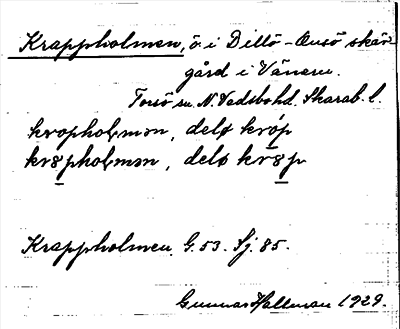 Krappholmen, ö. i Dillö-Onsö skär
gård i Vänern.
Torsö sn. N. Vadsbo hd. Skarab. l.
kropholmən, delø króp
krɵpholmən, delø krɵp
Krappholmen. G. 53. Sj. 85.
Gunnar Hallman 1929.